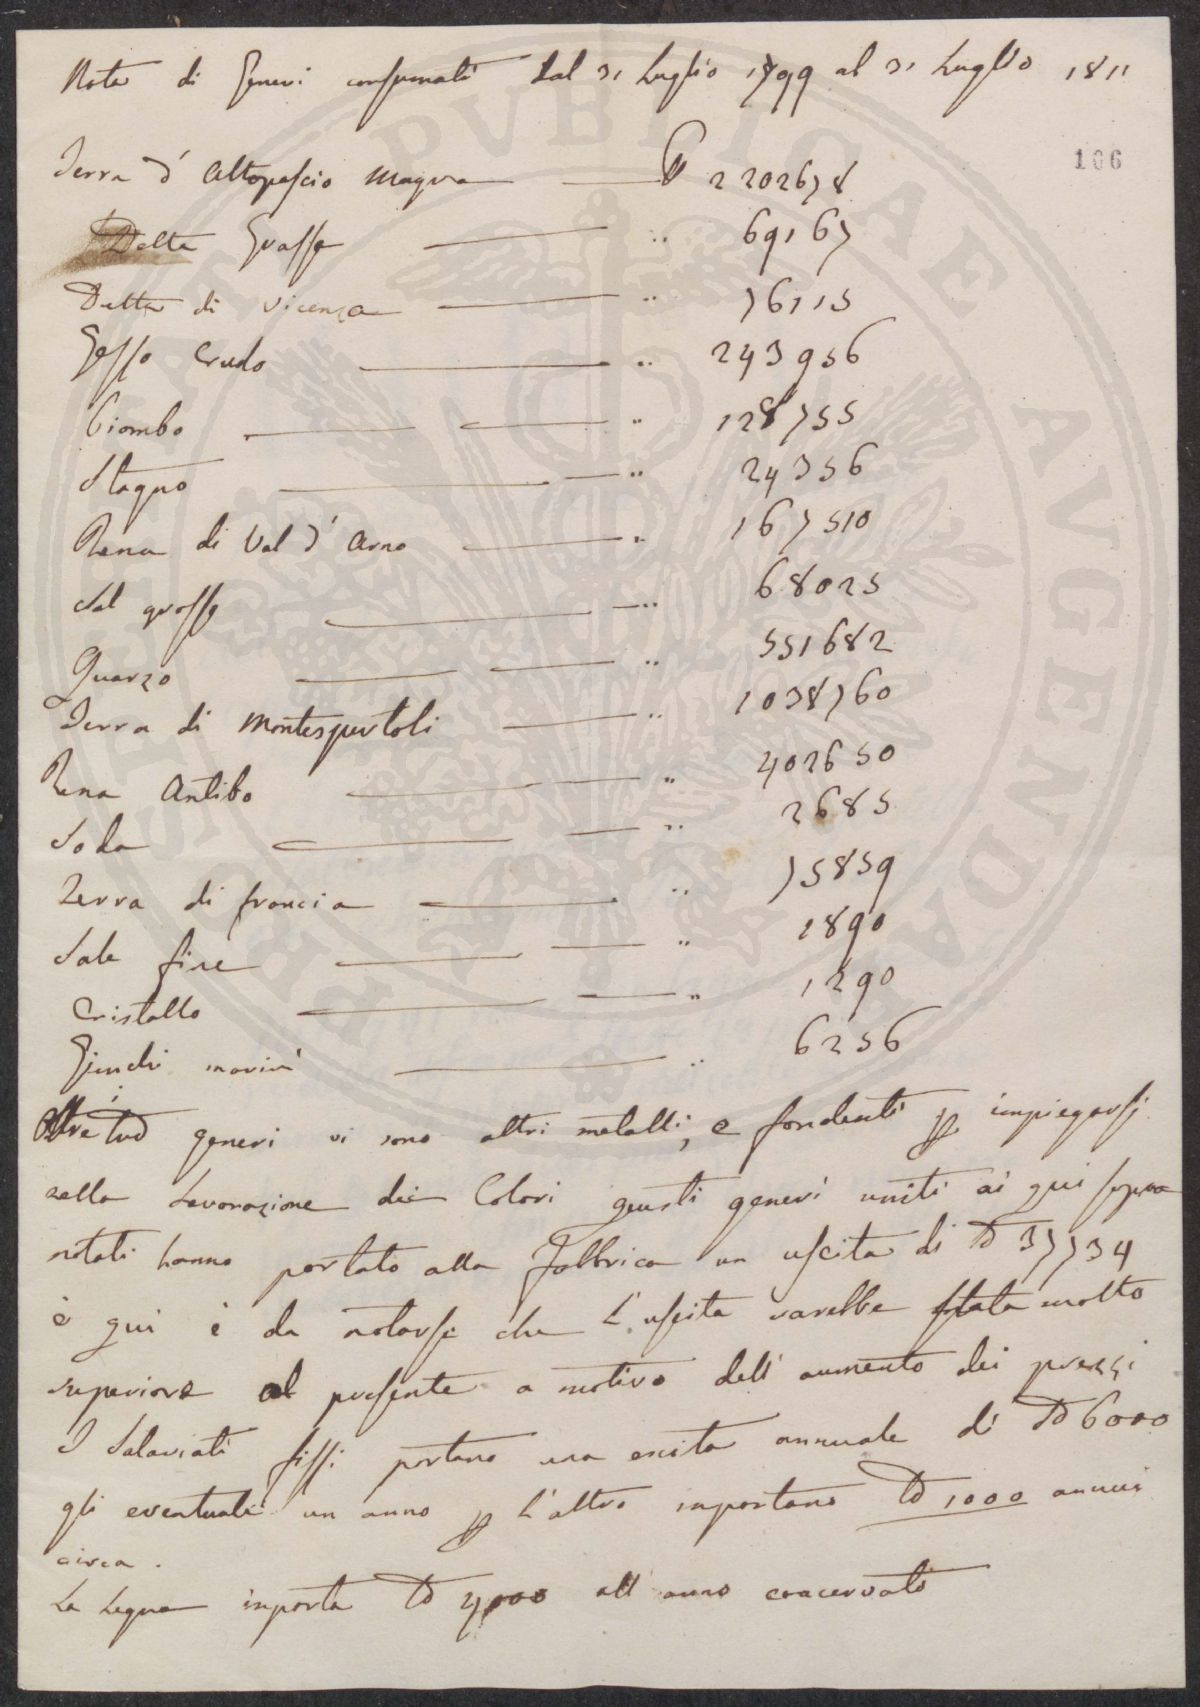 Nota di Generi consumati Dal 31 Luglio 1799 al 31 Luglio 1811
106
Terra d' Altopascio Magra 2202678
Detta Grassa " 69167
Detta di Vicenza " 76115
Gesso Crudo " 243956
Piombo " 128755
Stagno " 24356
Rena di Val d' Arno " 167510
Sal grosso " 68025
Quarzo " 551682
Terra di Montespertoli " 1038760
Rena Antibo " 402650
Soda " 2685
Terra di francia " 75859
Sale fine " 1890
Cristallo " 1290
Giunchi marini " 6256
Oltre i Sud generi vi sono altri metalli, e fondenti p impiegarsi
nella Lavorazione dei Colori questi generi uniti ai qui sopra
notati hanno portato alla Fabbrica un uscita di 37734
è qui è da notarsi che L'uscita sarebbe stata molto
superiore al presente a motivo dell' aumento dei prezzi
I Salariati fissi portano una escita annuale di 6000
gli eventuali un anno p L'altro importano 1000 annui
circa.
La Legna importa 4000 all anno coacervato
PVBLICAE AVGENDAE